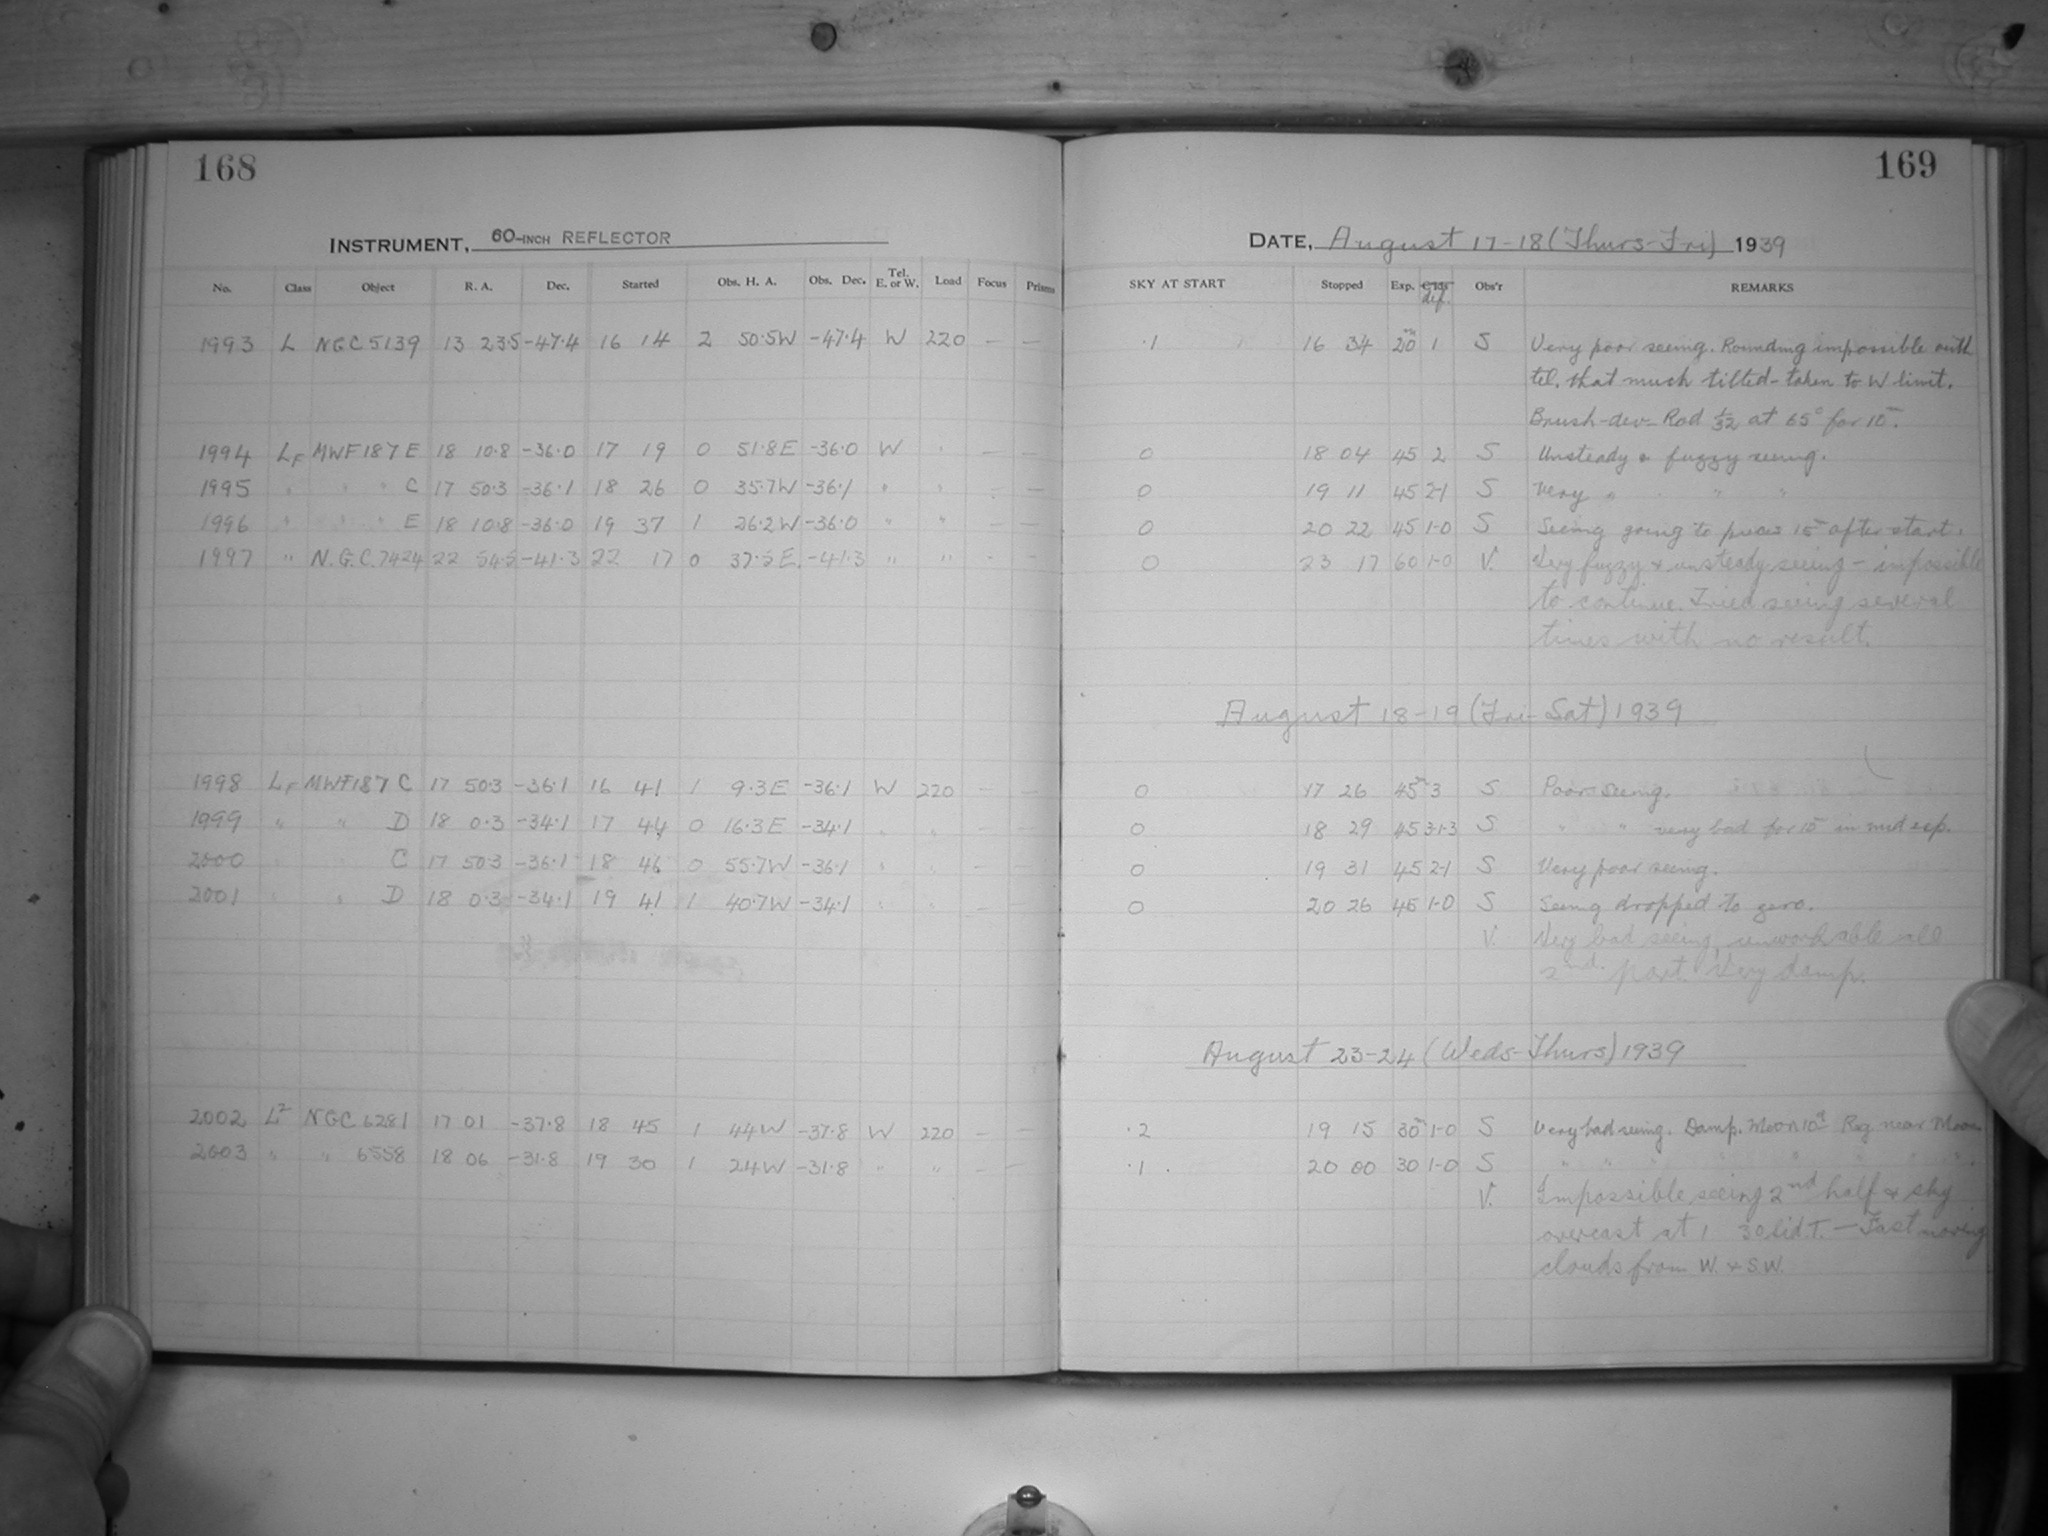 168
INSTRUMENT, 60-INCH REFLECTOR
No. Class Object R. A. Dec. Started Obs. H. A. Obs. Dec. Tel. E. or W. Load Focus Prisms
1993 L NGC 5139 13 23.5 -47.4 16 14 2 50.5W -47.4 W 220 — —
1994 LF MWF187 E 18 10.8 -36.0 17 19 0 51.8E -36.0 W " — —
1995 " " " C 17 50.3 -36.1 18 26 0 35.7W -36.1 " " — —
1996 " " " E 18 10.8 -36.0 19 37 1 26.2W -36.0 " " — —
1997 " N.G.C. 7424 22 54.5 -41.3 22 17 0 37.5E -41.3 " " - —
1998 LF MWF187 C 17 50.3 -36.1 16 41 1 9.3E -36.1 W 220 — —
1999 " " D 18 0.3 -34.1 17 44 0 16.3E -34.1 " " — —
2000 " " C 17 50.3 -36.1 18 46 0 55.7W -36.1 " " — —
2001 " " D 18 0.3 -34.1 19 41 1 40.7W -34.1 " " — —
2002 L2 NGC 6281 17 01 -37.8 18 45 1 44W -37.8 W 220 — —
2003 " " 6558 18 06 -31.8 19 30 1 24W -31.8 " " — —
169
DATE, August 17-18 (Thurs-Fri) 1939
SKY AT START Stopped Exp. def. Obs'r REMARKS
.1 16 34 20m 1 S Very poor seeing. Rounding impossible with
tel. that much tilted - taken to W limit.
Brush-dev- Rod 1/32 at 65° for 10m.
0 18 04 45 2 S Unsteady & fuzzy seeing.
0 19 11 45 2-1 S Very " " "
0 20 22 45 1-0 S Seeing going to pieces 15m after start.
0 23 17 60 1-0 V. Very fuzzy & unsteady seeing - impossible
to continue. Tried seeing several
times with no result.
August 18-19 (Fri-Sat) 1939
0 17 26 45m 3 S Poor seeing.
0 18 29 45 3-1-3 S " " very bad for 10m in mid exp.
0 19 31 45 2-1 S Very poor seeing.
0 20 26 45 1-0 S Seeing dropped to zero.
V. Very bad seeing, unworkable all
2nd. part. Very damp.
August 23-24 (Weds-Thurs) 1939
.2 19 15 30m 1-0 S Very bad seeing. Damp. Moon 10d Reg near Moon.
.1 20 00 30 1-0 S " " " " " " " "
V. Impossible seeing 2nd half & sky
overcast at 1 30 Sid. T. — Fast moving
clouds from W. & S.W.